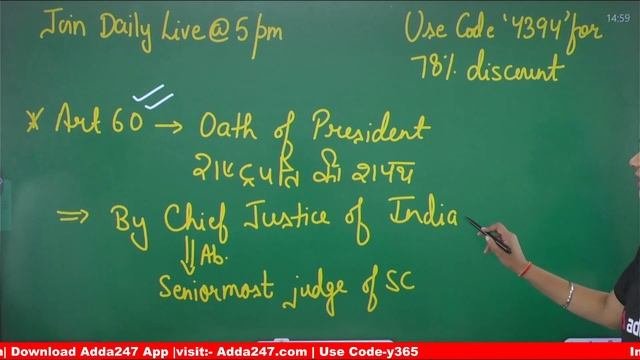 Join Daily Live @ 5 pm
Use Code '4394' for
78% discount
14:59
* Art 60 → Oath of President
राष्ट्रपति की शपथ
⇒ By Chief Justice of India
⇓ Ab.
Seniormost judge of SC
Download Adda247 App |visit:- Adda247.com | Use Code-y365